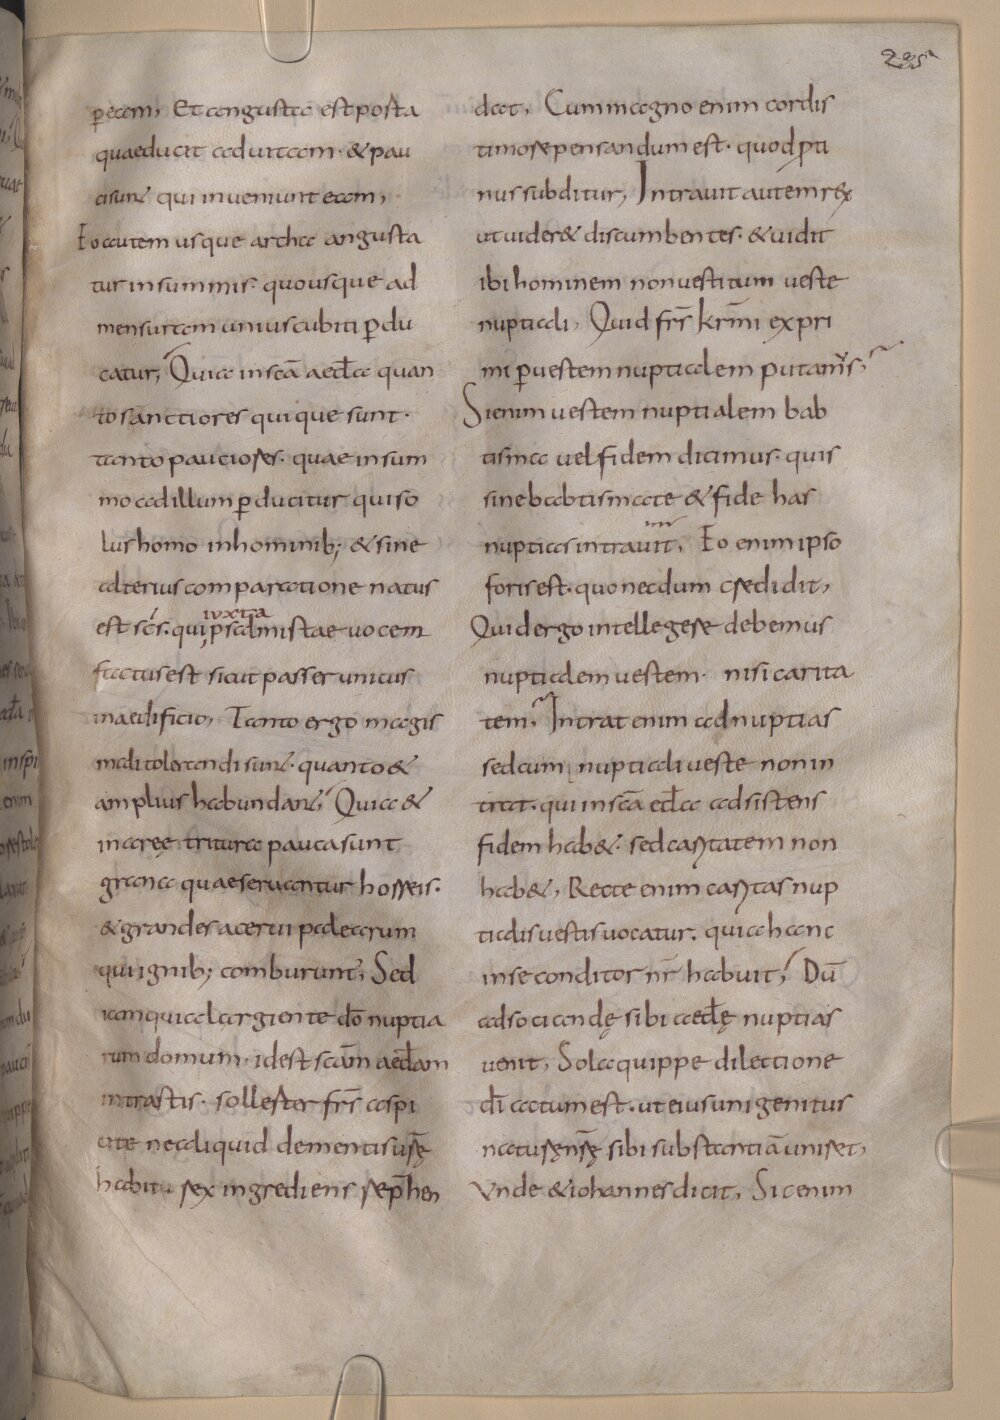 235
p̱ eam, Et angusta est posta
quae ducit ad uitam · & pau
ci sunt qui inueniunt eam,
Eo autem usque archa angusta
tur in summis · quousque ad
mensuram unius cubiti ꝑdu
catur, Quia in scā aeclą quan
to sanctiores quique sunt ·
tanto pauciores · quae in sum
mo ad illum ꝑducitur qui so
lus homo in hominib; & sine
alterius comparatione natus
est scs · qui iuxta psalmistae uocem
factus est sicut passer unicus
in aedificio, Tanto ergo magis
mali tolerandi sunt · quanto &
amplius habundant, Quia &
in aree tritura pauca sunt
grana quae seruantur horreis ·
& grandes acerui palearum
qui ignib; comburunt, Sed
iam quia largiente dō nuptia
rum domum · id est scām aeclam
intrastis · sollester frs aspi
cite ne aliquid de mentis urę
habitu rex ingrediens rep̄hen
dat, Cum magno enim cordis
timore pensandum est · quod pti
nus subditur, Intrauit autem rex
ut uider& discumbentes · & uidit
ibi hominem non uestitum ueste
nuptiali, Quid frs krmi expri
mi ꝑ uestem nuptialem putams,
Si enim uestem nuptialem bab
tisma uel fidem dicimus · quis
sine babtismate & fide has
nuptias intrauit, Eo enim ipso
foris est · quo necdum credidit,
Quid ergo intellegere debemus
nuptialem uestem · nisi carita
tem, Intrat enim ad nuptias
sed cum nuptiali ueste non in
trat · qui in scā ecla adsistens
fidem hab& · sed castatem non
hab&, Recte enim castas nup
tialis uestis uocatur · quia hanc
in se conditor nr habuit, Dū
ad sociandę sibi aeclę nuptias
uenit, Sola quippe dilectione
dī actum est · ut eius unigenitus
naturę nrę sibi substantiā uniret,
Vnde & iohannes dicit, Sic enim